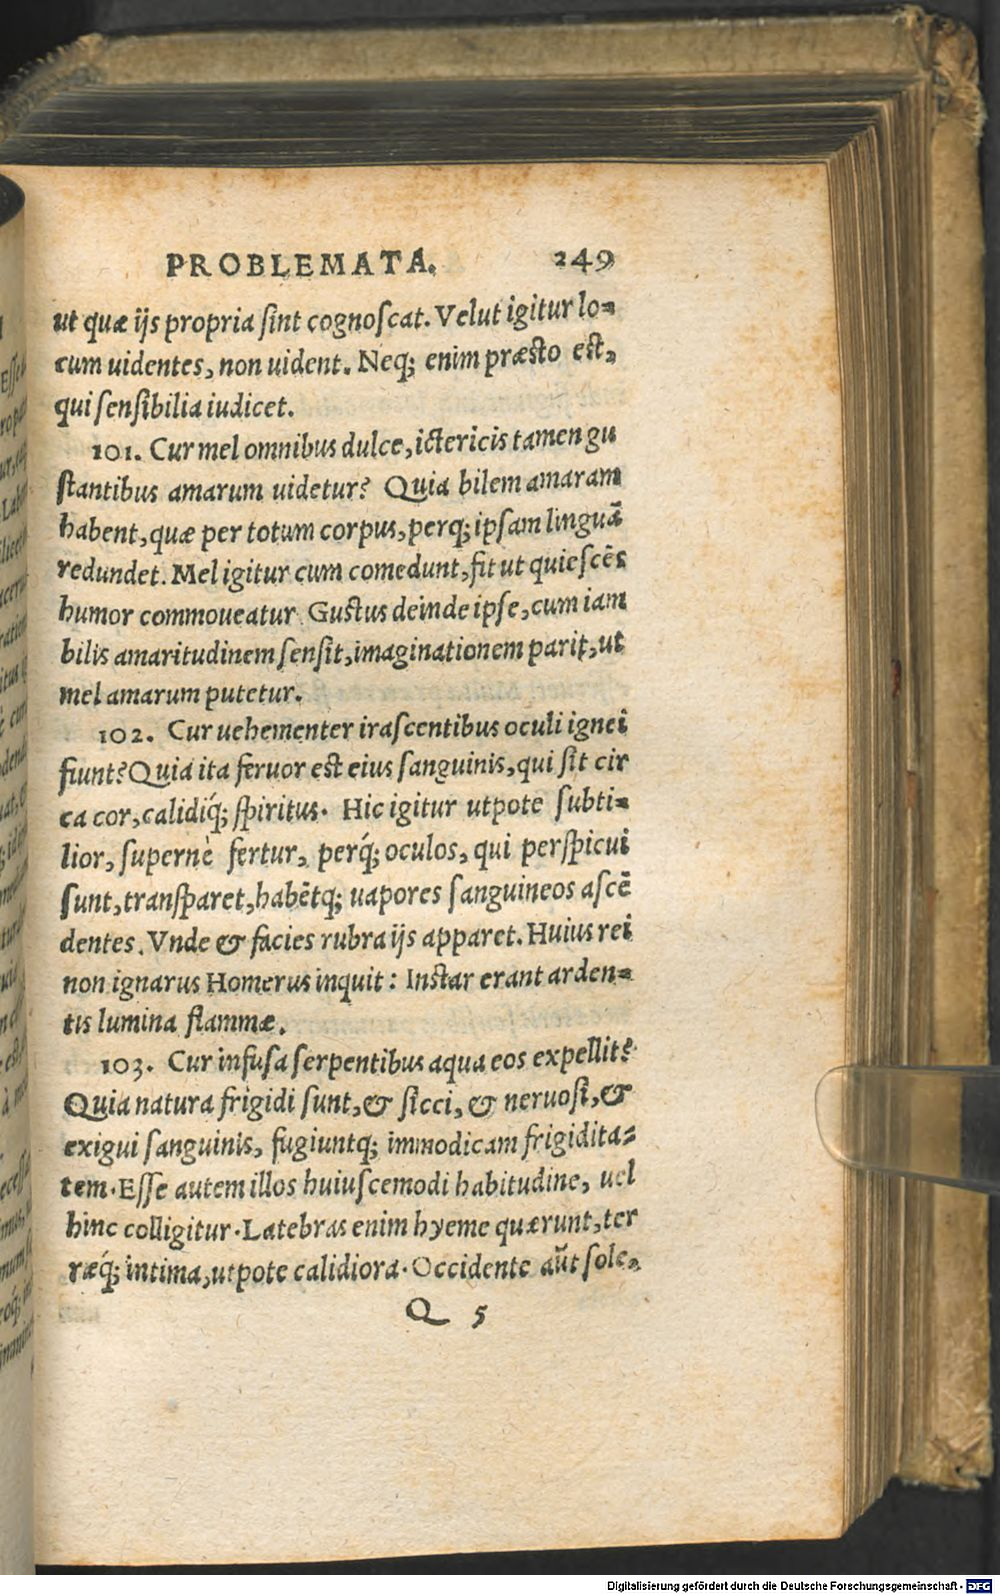 PROBLEMATA. 249
ut quæ ijs propria ſint cognoſcat. Velut igitur lo-
cum uidentes, non uident. Neq; enim præſto eſt,
qui ſenſibilia iudicet.
101. Cur mel omnibus dulce, ictericis tamen gu
ſtantibus amarum uidetur? Quia bilem amaram
habent, quæ per totum corpus, perq; ipſam linguā
redundet. Mel igitur cum comedunt, fit ut quieſcēs
humor commoueatur. Guſtus deinde ipſe, cum iam
bilis amaritudinem ſenſit, imaginationem parit, ut
mel amarum putetur.
102. Cur uehementer iraſcentibus oculi ignei
fiunt? Quia ita feruor eſt eius ſanguinis, qui ſit cir
ca cor, calidiq́; ſpiritus. Hic igitur utpote ſubti-
lior, ſupernè fertur, perq́; oculos, qui perſpicui
ſunt, tranſparet, habētq; uapores ſanguineos aſcē
dentes. Vnde & facies rubra ijs apparet. Huius rei
non ignarus Homerus inquit: Inſtar erant arden-
tis lumina flammæ.
103. Cur infuſa ſerpentibus aqua eos expellit?
Quia natura frigidi ſunt, & ſicci, & neruoſi, &
exigui ſanguinis, fugiuntq; immodicam frigidita-
tem. Eſſe autem illos huiuſcemodi habitudine, uel
hinc colligitur. Latebras enim hyeme quærunt, ter
ræq́; intima, utpote calidiora. Occidente aūt ſole,
Q 5
Digitalisierung gefördert durch die Deutsche Forschungsgemeinschaft - DFG